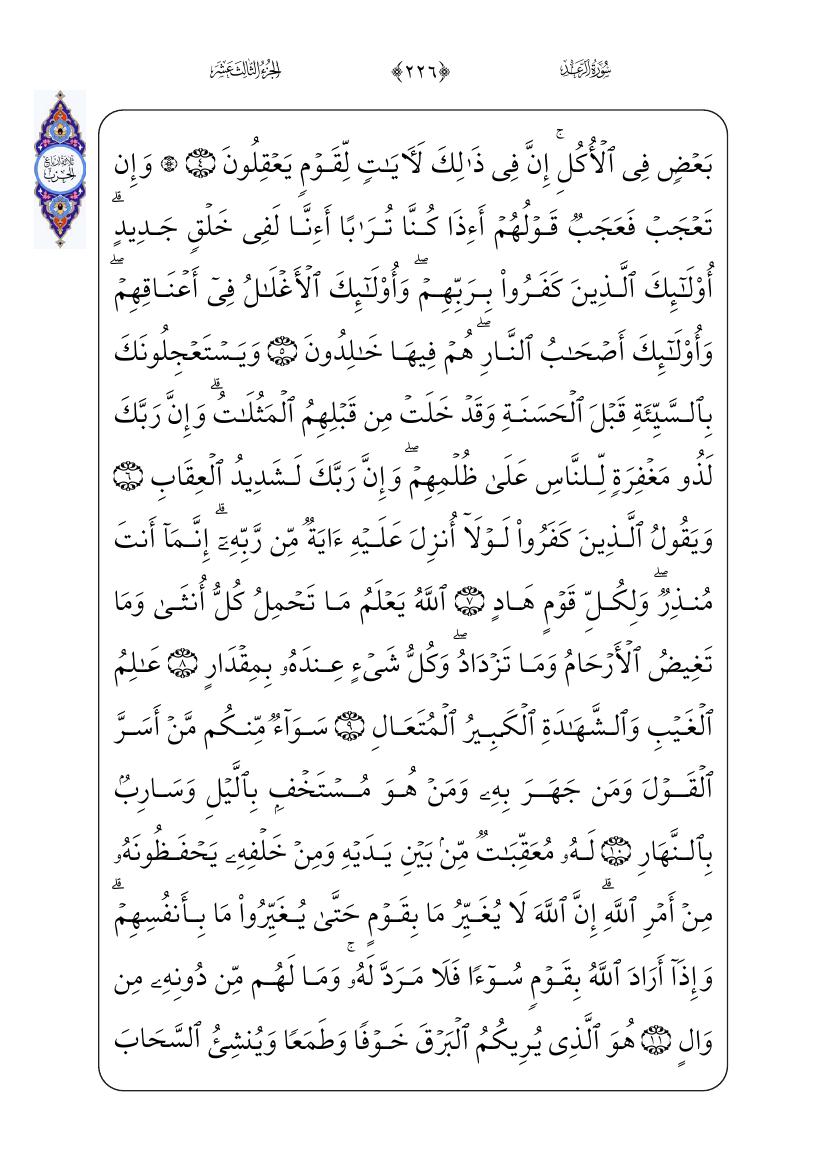 سُورَةُ الرَّعْدِ ﴿٢٢٦﴾ الجُزْءُ الثَّالِثَ عَشَرَ
ثلاثة أرباع
الحزب
بَعۡضٖ فِي ٱلۡأُكُلِۚ إِنَّ فِي ذَٰلِكَ لَأٓيَٰتٖ لِّقَوۡمٖ يَعۡقِلُونَ ٤ ۞ وَإِن
تَعۡجَبۡ فَعَجَبٞ قَوۡلُهُمۡ أَءِذَا كُنَّا تُرَٰبًا أَءِنَّا لَفِي خَلۡقٖ جَدِيدٍۗ
أُوْلَٰٓئِكَ ٱلَّذِينَ كَفَرُواْ بِرَبِّهِمۡۖ وَأُوْلَٰٓئِكَ ٱلۡأَغۡلَٰلُ فِيٓ أَعۡنَاقِهِمۡۖ
وَأُوْلَٰٓئِكَ أَصۡحَٰبُ ٱلنَّارِۖ هُمۡ فِيهَا خَٰلِدُونَ ٥ وَيَسۡتَعۡجِلُونَكَ
بِٱلسَّيِّئَةِ قَبۡلَ ٱلۡحَسَنَةِ وَقَدۡ خَلَتۡ مِن قَبۡلِهِمُ ٱلۡمَثُلَٰتُۗ وَإِنَّ رَبَّكَ
لَذُو مَغۡفِرَةٖ لِّلنَّاسِ عَلَىٰ ظُلۡمِهِمۡۖ وَإِنَّ رَبَّكَ لَشَدِيدُ ٱلۡعِقَابِ ٦
وَيَقُولُ ٱلَّذِينَ كَفَرُواْ لَوۡلَآ أُنزِلَ عَلَيۡهِ ءَايَةٞ مِّن رَّبِّهِۦٓۗ إِنَّمَآ أَنتَ
مُنذِرٞۖ وَلِكُلِّ قَوۡمٍ هَادٍ ٧ ٱللَّهُ يَعۡلَمُ مَا تَحۡمِلُ كُلُّ أُنثَىٰ وَمَا
تَغِيضُ ٱلۡأَرۡحَامُ وَمَا تَزۡدَادُۖ وَكُلُّ شَيۡءٍ عِندَهُۥ بِمِقۡدَارٍ ٨ عَٰلِمُ
ٱلۡغَيۡبِ وَٱلشَّهَٰدَةِ ٱلۡكَبِيرُ ٱلۡمُتَعَالِ ٩ سَوَآءٞ مِّنكُم مَّنۡ أَسَرَّ
ٱلۡقَوۡلَ وَمَن جَهَرَ بِهِۦ وَمَنۡ هُوَ مُسۡتَخۡفِۭ بِٱلَّيۡلِ وَسَارِبُۢ
بِٱلنَّهَارِ ١٠ لَهُۥ مُعَقِّبَٰتٞ مِّنۢ بَيۡنِ يَدَيۡهِ وَمِنۡ خَلۡفِهِۦ يَحۡفَظُونَهُۥ
مِنۡ أَمۡرِ ٱللَّهِۗ إِنَّ ٱللَّهَ لَا يُغَيِّرُ مَا بِقَوۡمٍ حَتَّىٰ يُغَيِّرُواْ مَا بِأَنفُسِهِمۡۗ
وَإِذَآ أَرَادَ ٱللَّهُ بِقَوۡمٖ سُوٓءٗا فَلَا مَرَدَّ لَهُۥۚ وَمَا لَهُم مِّن دُونِهِۦ مِن
وَالٍ ١١ هُوَ ٱلَّذِي يُرِيكُمُ ٱلۡبَرۡقَ خَوۡفٗا وَطَمَعٗا وَيُنشِئُ ٱلسَّحَابَ